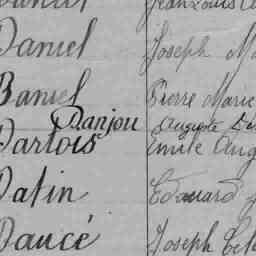 Jean Louis
Daniel Joseph Ma
Baniel Pierre Marie
Danjou Auguste Dés
Dartois Emile Aug
Datin Edouard
Daucé Joseph Cel